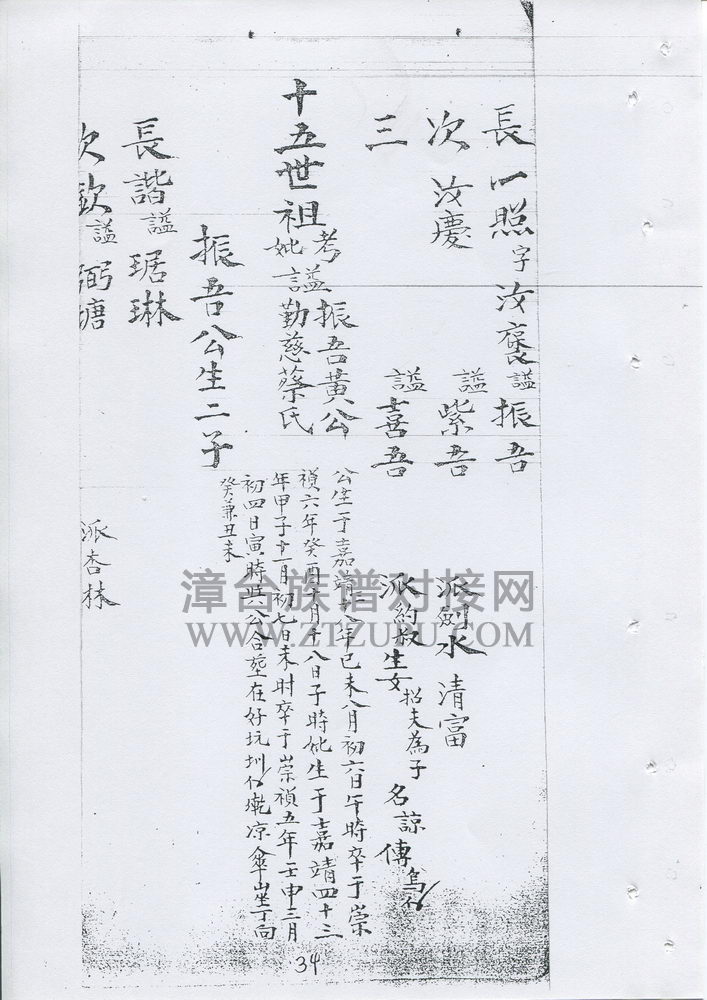 長一照字汝褒諡振吾
次汝慶 諡紫吾 派劍水清富
三 諡喜吾 派約叔生女招夫為子名諒傳
十五世祖考諡振吾黃公
妣諡勤慈蔡氏
公生于嘉靖卅八年己未八月初六日午時卒于崇
禎六年癸酉十月十八日子時妣生于嘉靖四十三
年甲子十一月初七日未時卒于崇禎五年壬申三月
初四日寅時與公合塟在好坑圳凉傘坐丁向
癸兼丑未
振吾公生二子
長諧諡琚琳
次欽諡弼塘 派杏林
34
漳台族谱对接网
WWW.ZTZUPU.COM